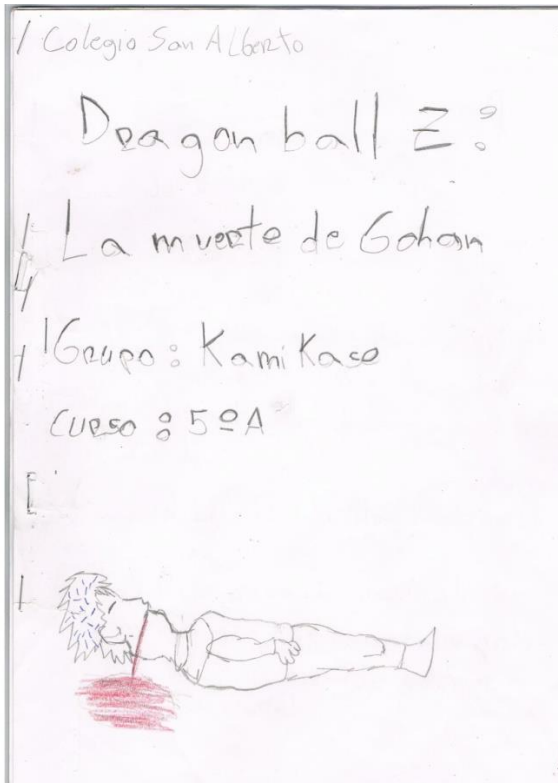 Colegio San Alberto
Dragon ball Z:
La muerte de Gohan
Grupo: Kamikase
Curso: 5ºA